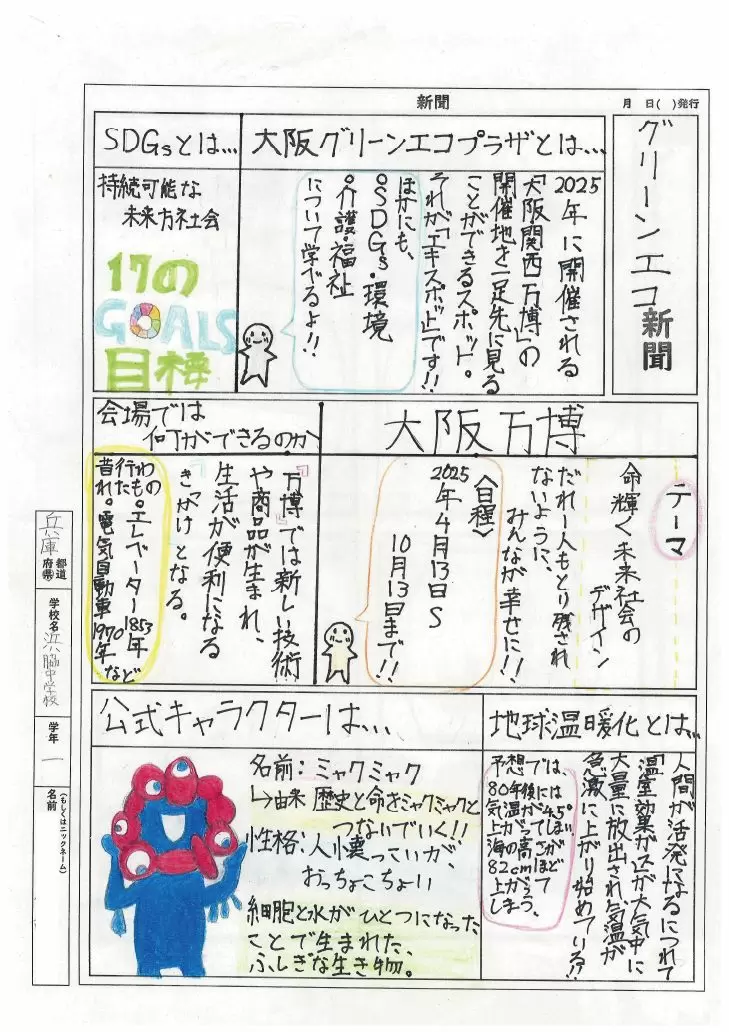 新聞
月 日( )発行
グリーンエコ新聞
大阪グリーンエコプラザとは…
2025年に開催される
「大阪関西万博」の
開催地を一足先に見る
ことができるスポット。
それが「エキスポット」です!!
ほかにも、
○SDGs・環境
○介護・福祉
について学べるよ!!
SDGsとは…
持続可能な
未来方社会
17の
GOALS
目標
大阪万博
テーマ
命輝く未来社会の
デザイン
だれ一人もとり残され
ないように、
みんなが幸せに!!
〈日程〉
2025年4月13日S
10月13日まで!!
会場では
何ができるのか
万博では新しい技術
や商品が生まれ、
生活が便利になる
きっかけとなる。
昔行われたもの
。エレベーター1853年
。電気自動車1970年など
地球温暖化とは…
人間が活発になるにつれて
「温室効果ガス」が大気中に
大量に放出され、気温が
急激に上がり始めている!?
予想では、
80年後には
気温が4.5°
上がってしまう
海の高さがほど
82cmほど
上がって
しまう、
公式キャラクターは…
名前:ミャクミャク
↳由来 歴史と命をミャクミャクと
つないでいく!!
性格:人懐っこいが、
おっちょこちょい
細胞と水がひとつになった
ことで生まれた、
ふしぎな生き物。
兵庫 都道府県
学校名 浜脇中学校
学年 一
名前(もしくはニックネーム)